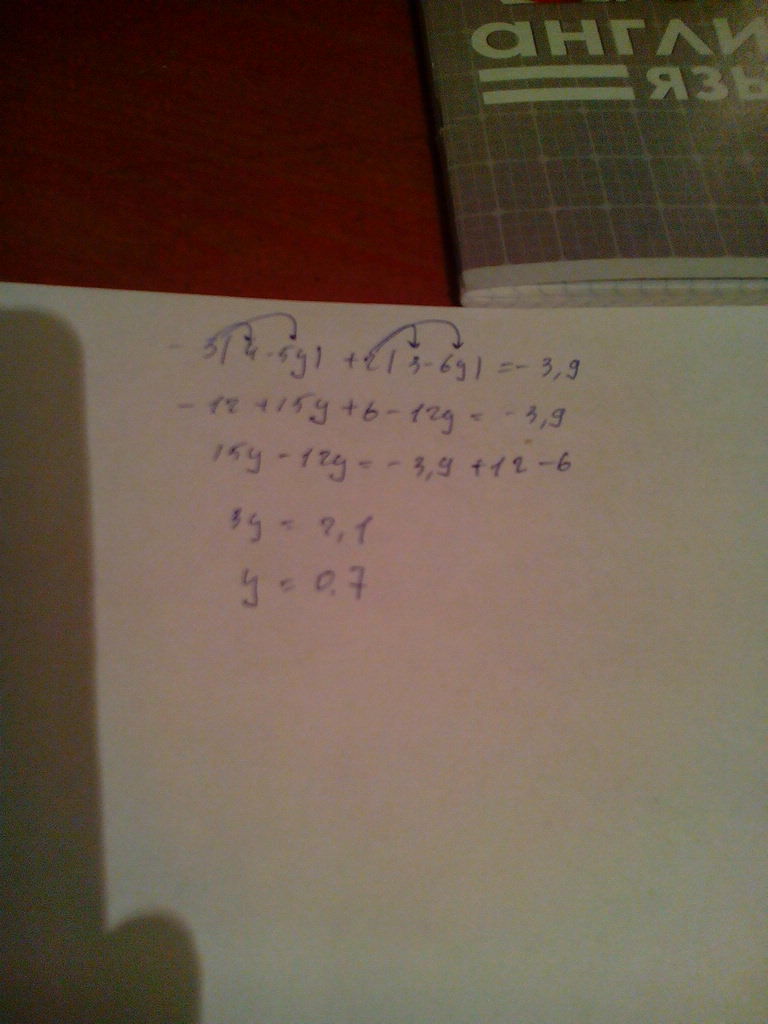 англи
язы
- 3(4-5y) + 2(3-6y) = - 3,9
- 12 + 15y + 6 - 12y = - 3,9
15y - 12y = - 3,9 + 12 - 6
3y = 2,1
y = 0,7